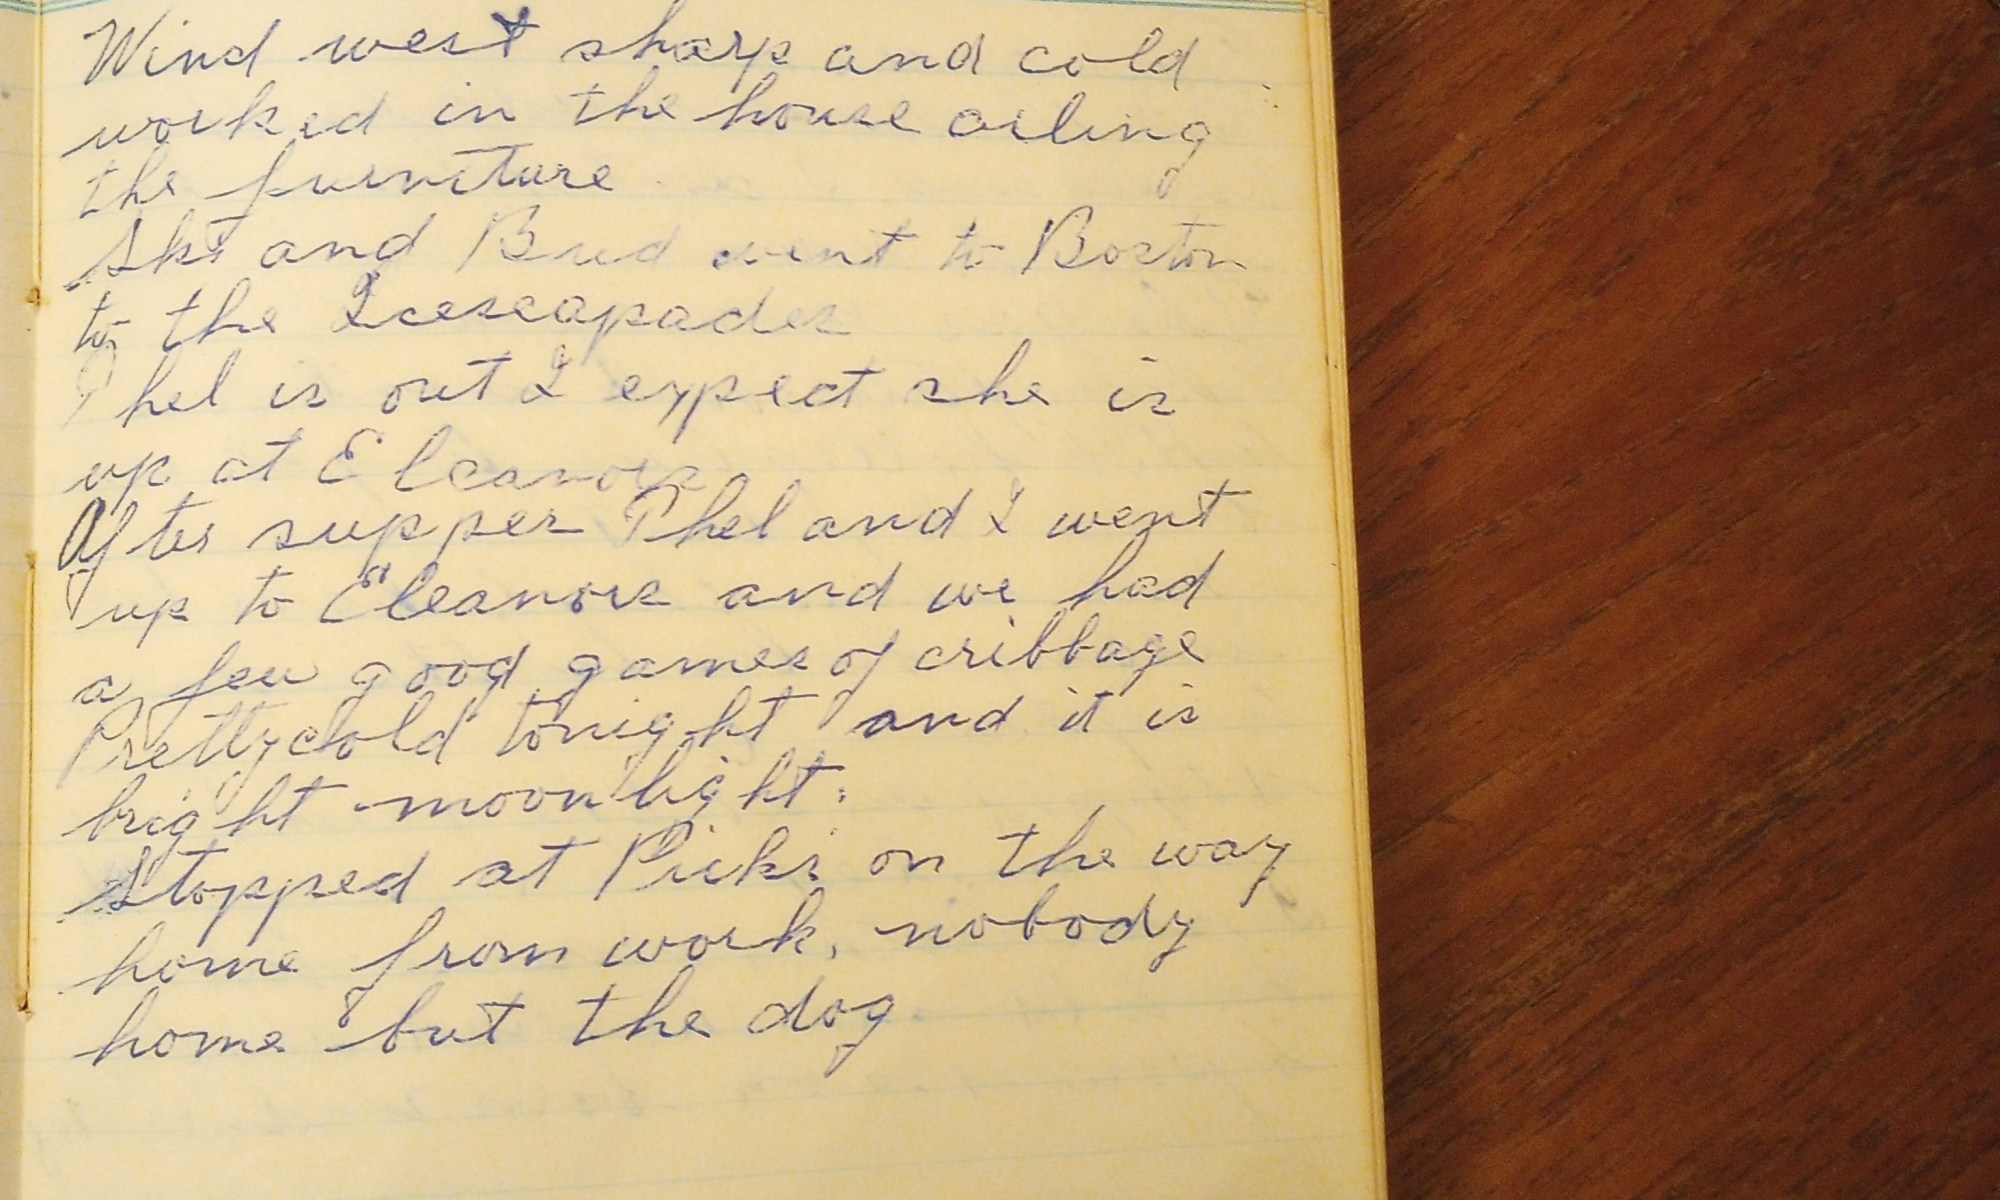 Wind west sharp and cold
worked in the house oiling
the furniture
Ski and Bud went to Boston
to the Icescapades
Phel is out I expect she is
up at Eleanors
After supper Phel and I went
up to Eleanors and we had
a few good games of cribbage
Pretty cold tonight and it is
bright moonlight.
Stopped at Picks on the way
home from work, nobody
home but the dog